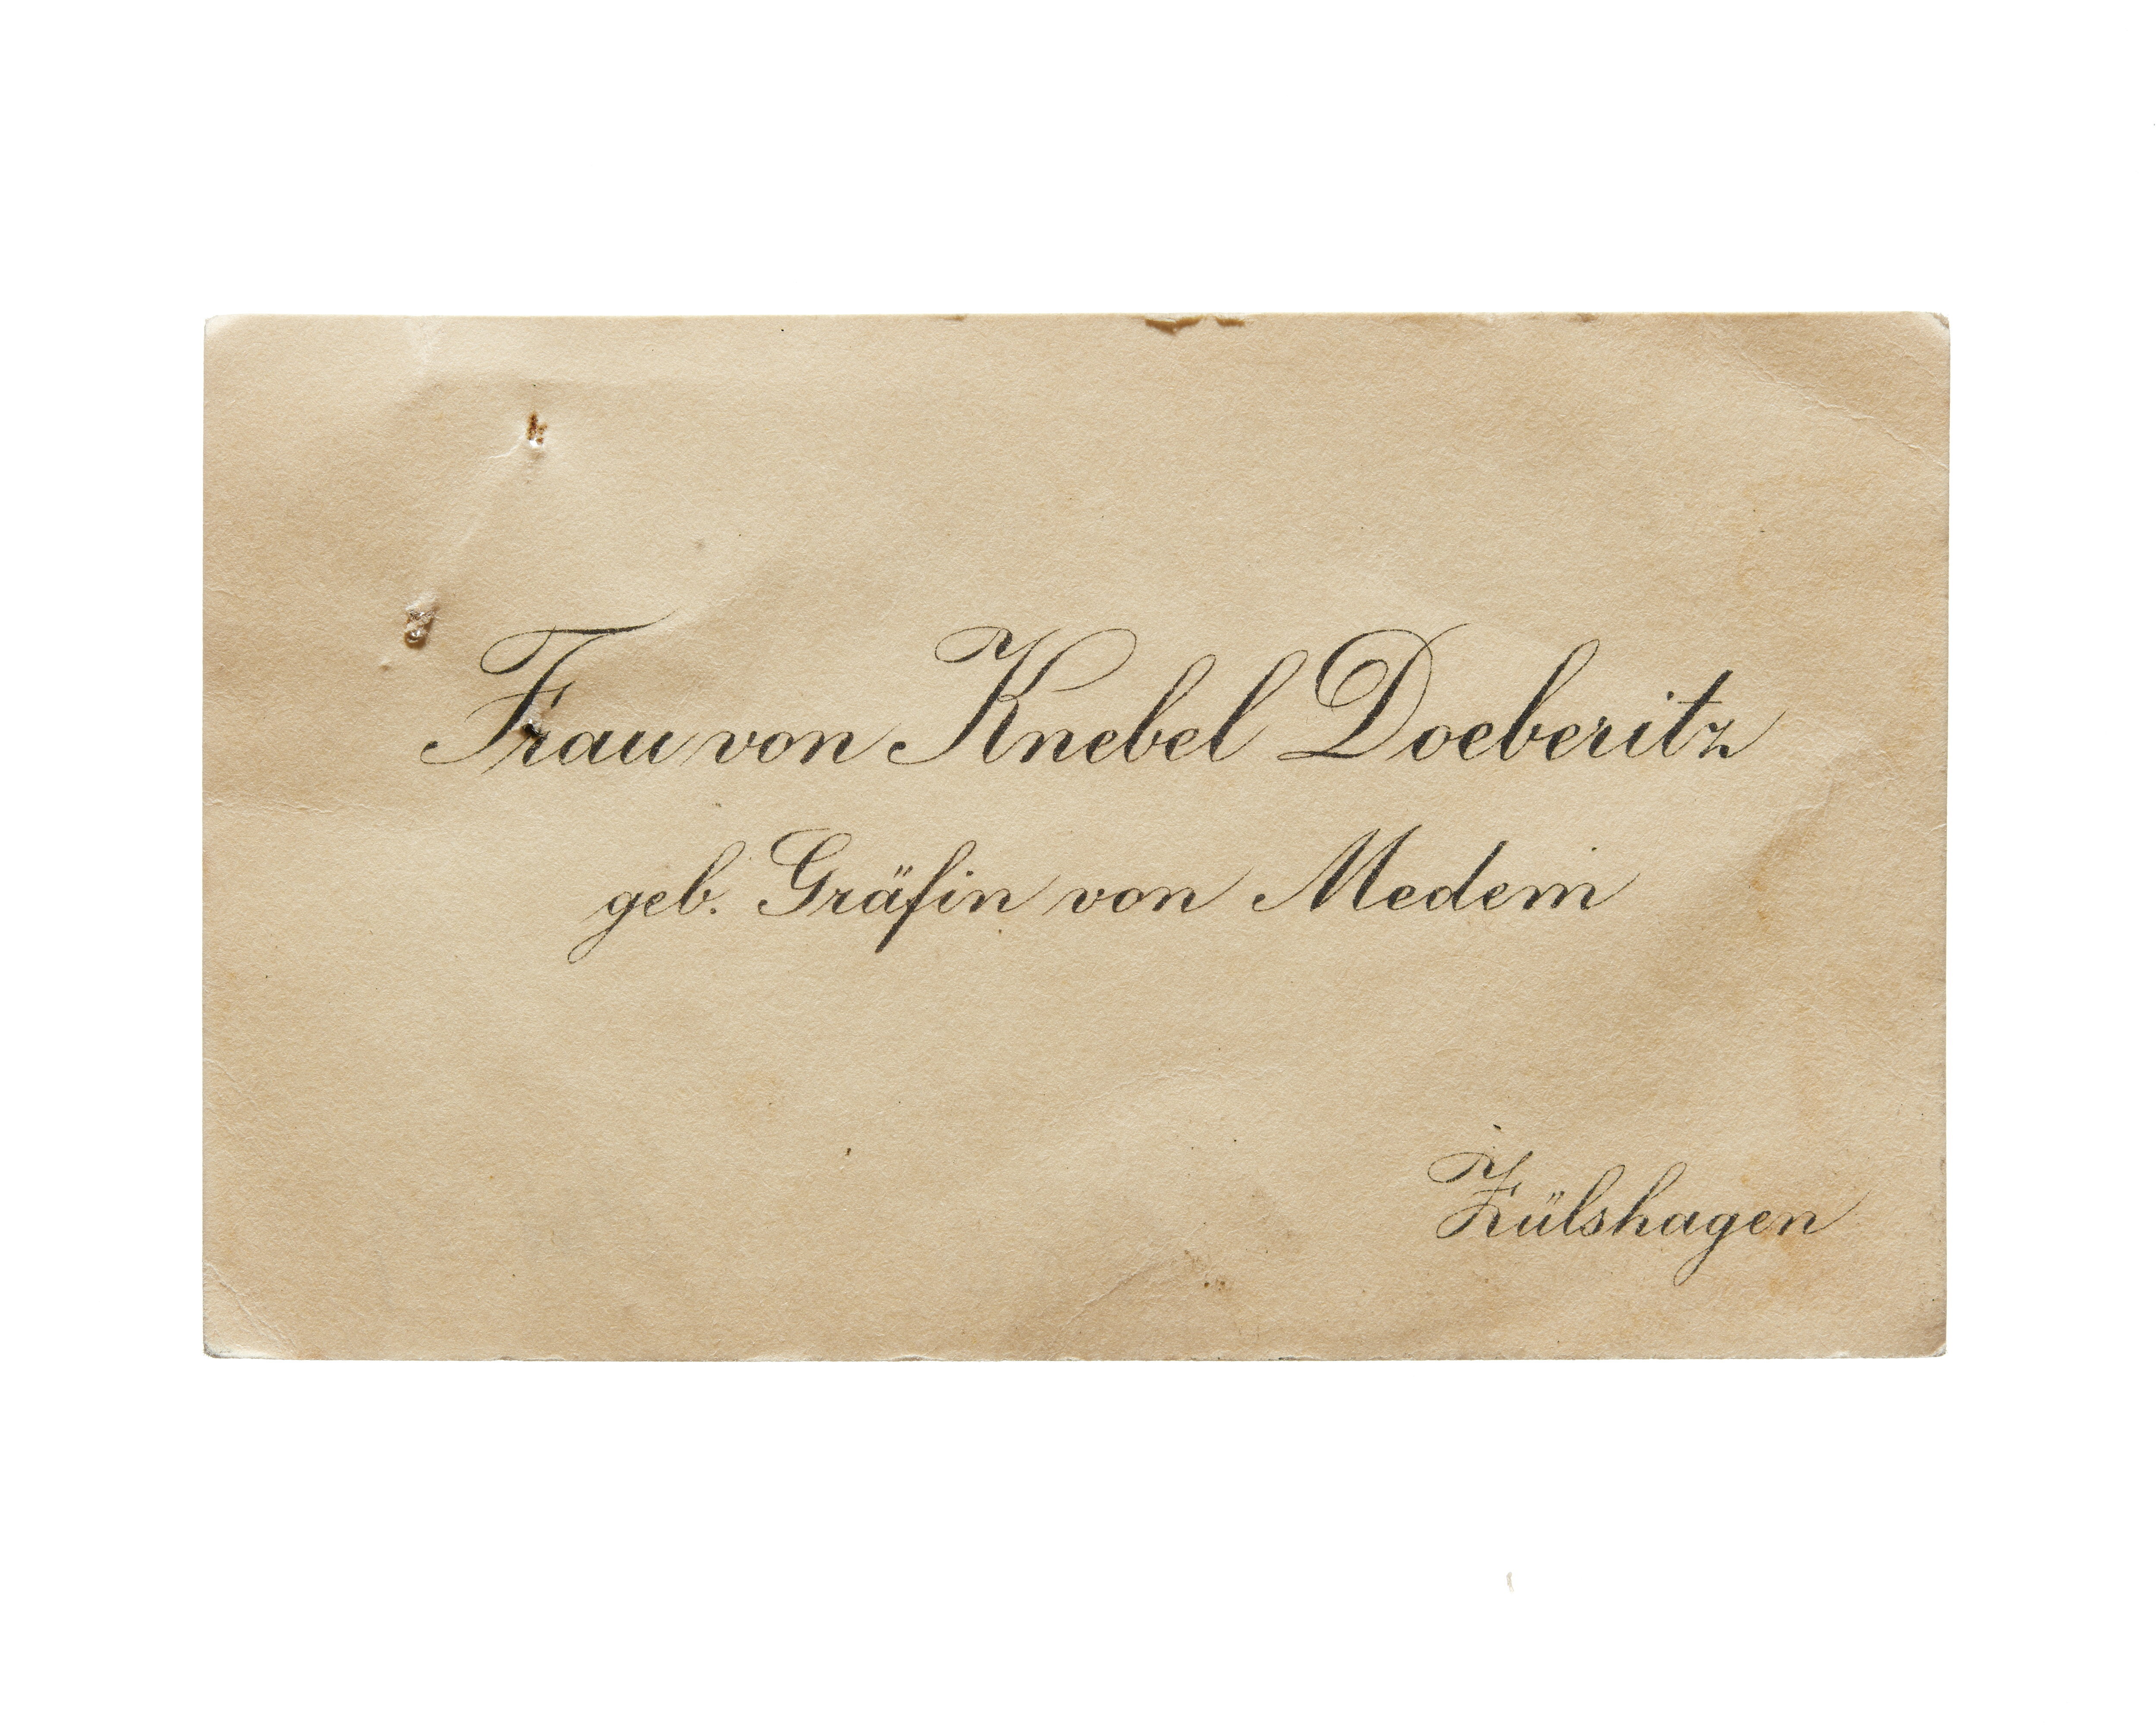 Frau von Knebel Doeberitz
geb. Gräfin von Medem
Zülshagen